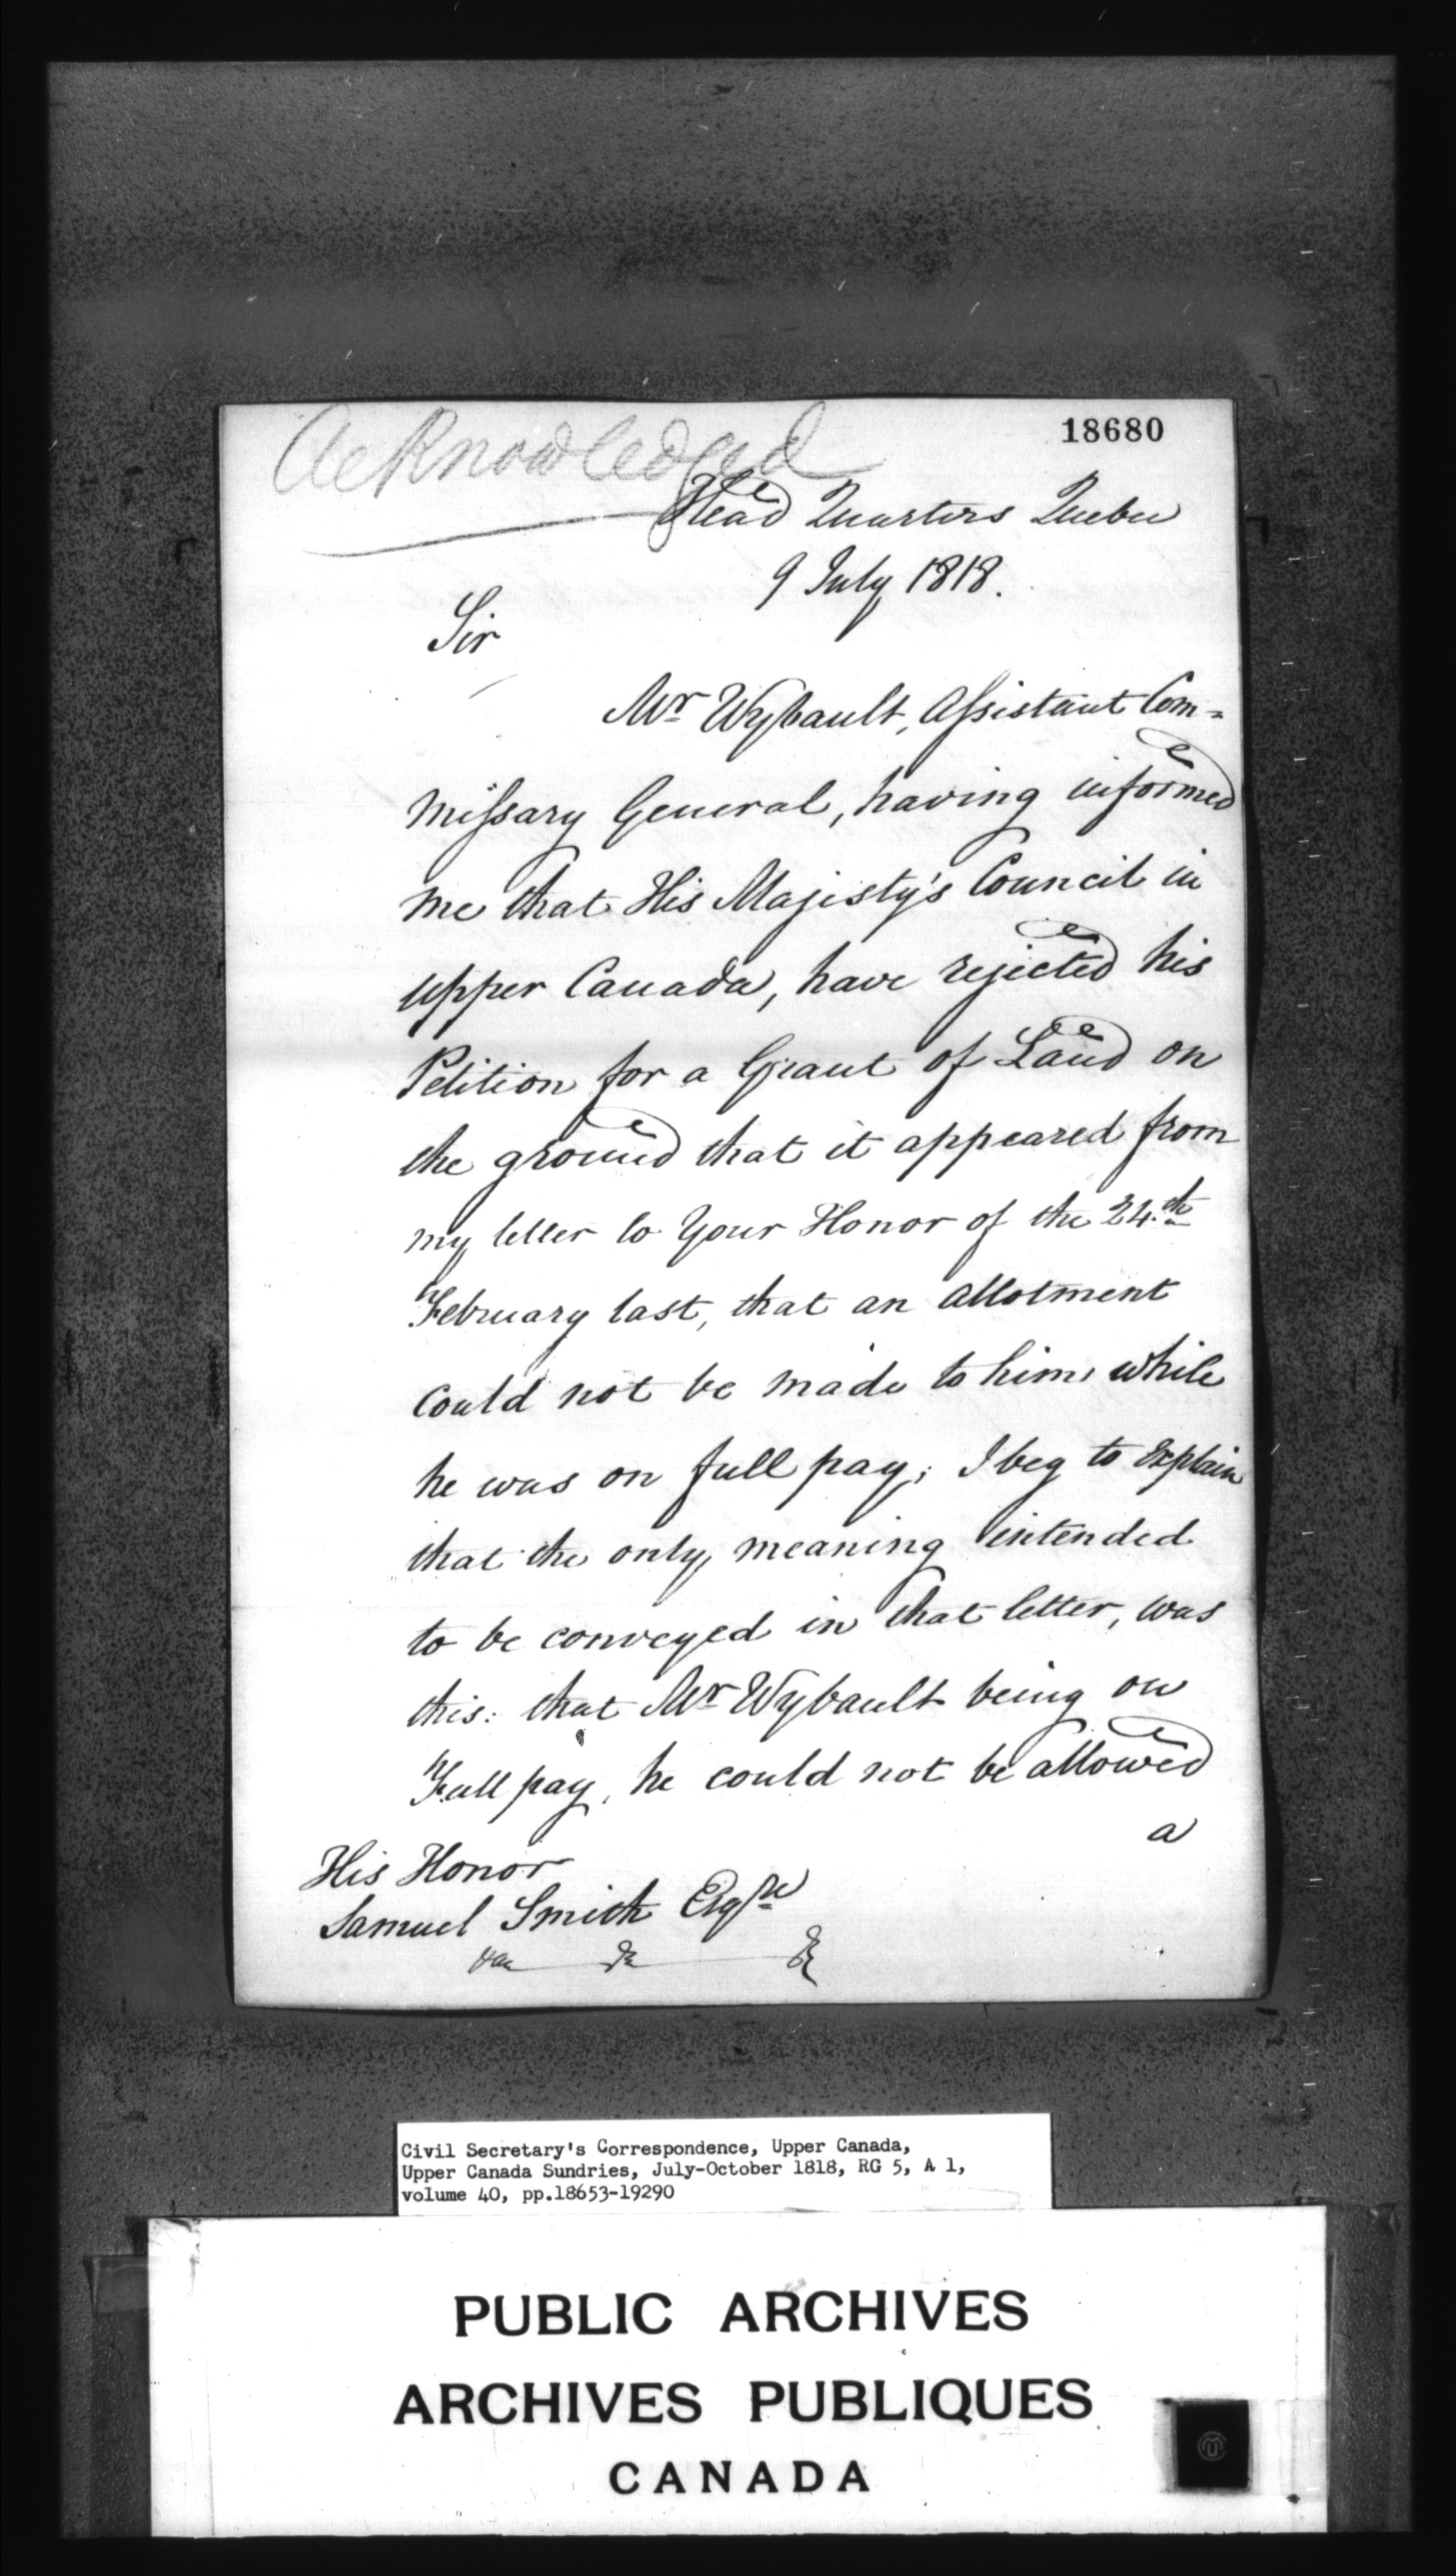 Acknowledged
18680
Head Quarters Quebec
9 July 1818.
Sir
Mr Wybault, Assistant Com=
missary General, having informed
me that His Majesty's Council in
Upper Canada, have rejected his
Petition for a Grant of Land on
the ground that it appeared from
my letter to Your Honor of the 24.th
February last, that an allotment
could not be made to him while
he was on full pay; I beg to Explain
that the only meaning intended
to be conveyed in that letter, was
this: that Mr Wybault being on
Full pay, he could not be allowed
a
His Honor
Samuel Smith Esqre
Civil Secretary's Correspondence, Upper Canada,
Upper Canada Sundries, July-October 1818, RG 5, A 1,
volume 40, pp.18653-19290
PUBLIC ARCHIVES
ARCHIVES PUBLIQUES
CANADA